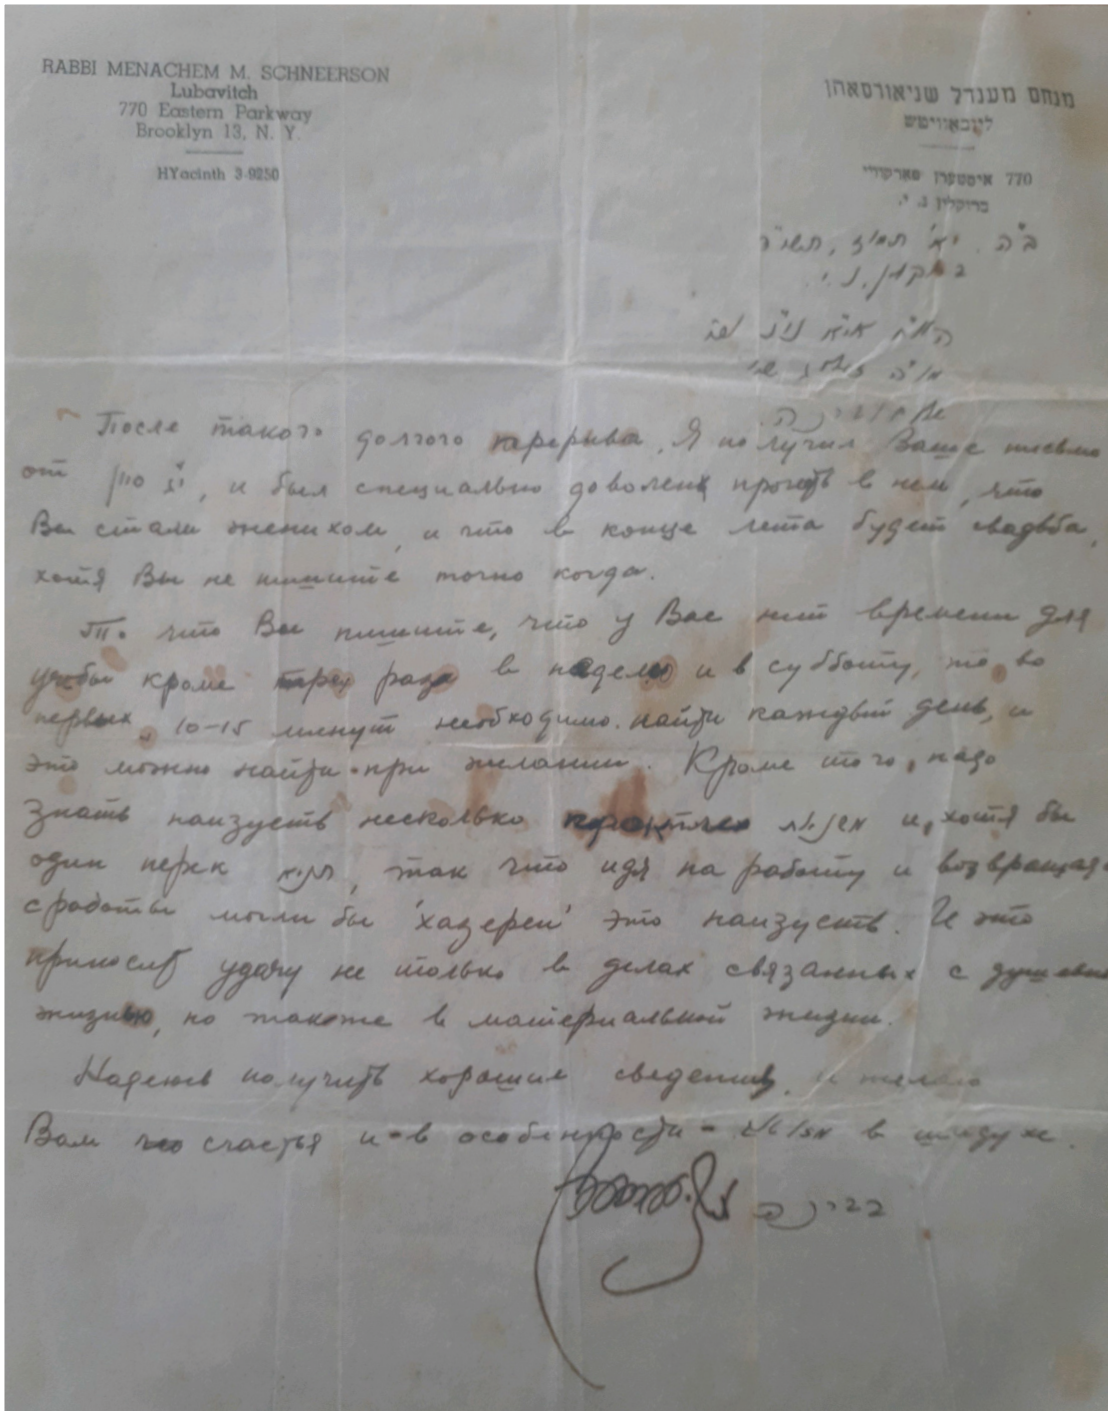 RABBI MENACHEM M. SCHNEERSON
Lubavitch
770 Eastern Parkway
Brooklyn 13, N. Y.
HYacinth 3-9250
מנחם מענדל שניאורסאהן
ליובאוויטש
770 איסטערן פארקוויי
ברוקלין נ. י.
ב"ה. יא' תמוז, תשי"
ברוקלין, נ.י.
שלום וברכה.
После такого долгого перерыва, Я получил Ваше письмо
от, и был специально доволен прочесть в нем, что
Вы стали женихом, и что в конце лета будет свадьба,
хотя Вы не пишите точно когда.
То что Вы пишите, что у Вас нет времени для
учобы кроме трех раза в неделю и в субботу, то, во
первых, 10-15 минут необходимо найти каждый день, и
это можно найти при желании. Кроме того, надо
знать наизусть несколько משניות и, хотя бы
один перек תניא, так что идя на работу и возвращая
с работы могли бы 'хазерен' это наизусть. И это
приносит удачу не только в делах связанных с
жизнью, но также в материальной жизни.
Надеюсь получить хорошие сведения, и желаю
Вам счастья и - в особенности - в шидухе.
בברכה